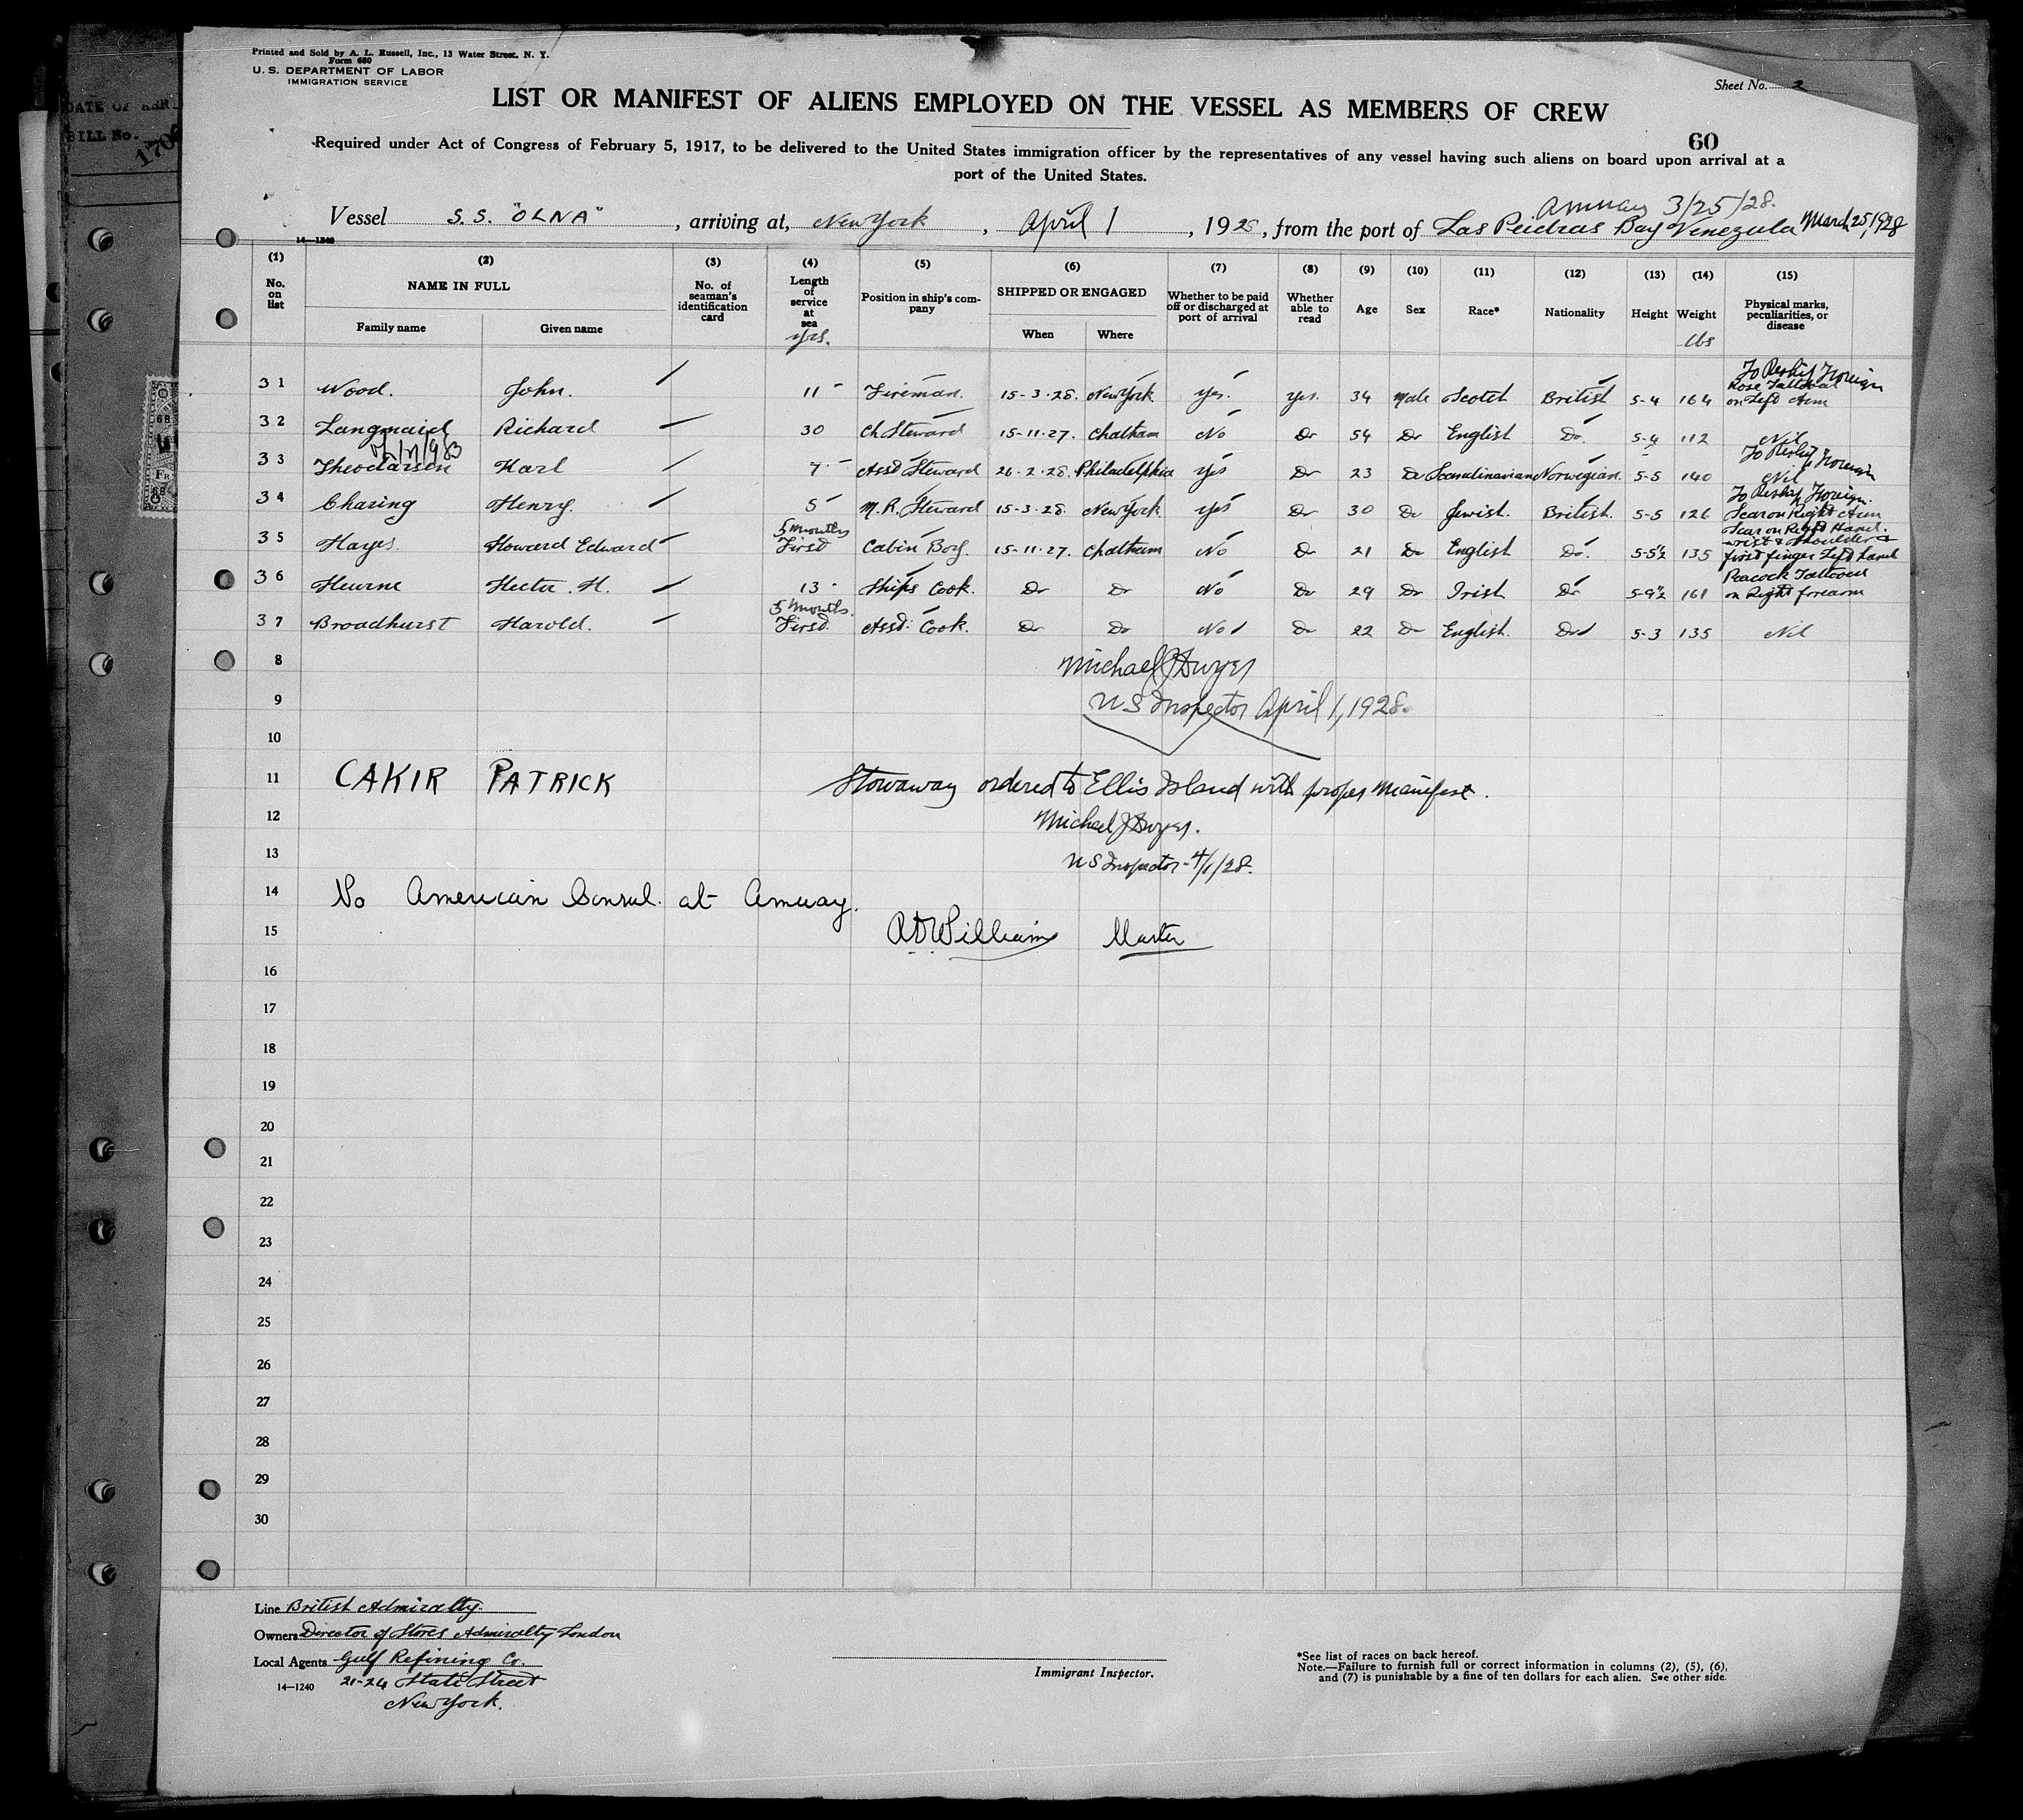 DATE OF
BILL No.
170
Printed and Sold by A. L. Russell, Inc., 13 Water Street, N. Y.
Form 680
U. S. DEPARTMENT OF LABOR
IMMIGRATION SERVICE
Sheet No. 2
LIST OR MANIFEST OF ALIENS EMPLOYED ON THE VESSEL AS MEMBERS OF CREW
60
Required under Act of Congress of February 5, 1917, to be delivered to the United States immigration officer by the representatives of any vessel having such aliens on board upon arrival at a
port of the United States.
Amuay 3/25/28.
Vessel S.S. "OLNA", arriving at, New York, April 1, 1928, from the port of Las Peidras Bay Venezula March 25, 1928
14-1240
(1) (2) (3) (4) (5) (6) (7) (8) (9) (10) (11) (12) (13) (14) (15)
No. on list NAME IN FULL Family name Given name No. of seaman's identification card Length of service at sea yrs. Position in ship's company SHIPPED OR ENGAGED When Where Whether to be paid off or discharged at port of arrival Whether able to read Age Sex Race* Nationality Height Weight lbs Physical marks, peculiarities, or disease
31 Wood. John. 11 Fireman. 15-3-28. New York. Yes. Yes. 34 Male Scotch British 5-4 164 To Reship Foreign Rose Tattooed on Left Arm
32 Langmaid Richard 30 Ch Steward 15-11-27. Chatham No Do 54 Do English Do. 5-4 112 Nil
33 Theodarsen Karl 7 Asst Steward 26-2-28. Philadelphia Yes Do 23 Do Scandinavian Norwegian. 5-5 140 To Reship Foreign Nil
34 Charing Henry. 5 M.R. Steward 15-3-28. New York. Yes Do 30 Do Jewish. British. 5-5 126 To Reship Foreign. Scar on Right Arm
35 Hayes. Howard Edward 5 months First Cabin Boy. 15-11-27. Chatham No Do 21 Do English Do. 5-5½ 135 Scar on Right Hand. wrist & shoulder & first finger Left hand
36 Hewrne Hector. H. 13 Ships Cook. Do Do No Do 29 Do Irish Do 5-9½ 161 Peacock Tattooed on Right forearm
37 Broadhurst Harold. 5 months. First. Asst. Cook. Do Do No Do 22 Do English. Do 5-3 135 Nil
8 Michael J Dwyer
9 US Inspector April 1, 1928.
10
11 CAKIR PATRICK Stowaway ordered to Ellis Island with proper Manifest.
12 Michael J Dwyer.
13 US Inspector - 4/1/28.
14 No American Consul. at Amuay.
15 R D Williams Master
16
17
18
19
20
21
22
23
24
25
26
27
28
29
30
Line British Admiralty.
Owners Director of Stores Admiralty London
Local Agents Gulf Refining Co.
14—1240 21-24 State Street
New York.
Immigrant Inspector.
*See list of races on back hereof.
Note.—Failure to furnish full or correct information in columns (2), (5), (6),
and (7) is punishable by a fine of ten dollars for each alien. See other side.